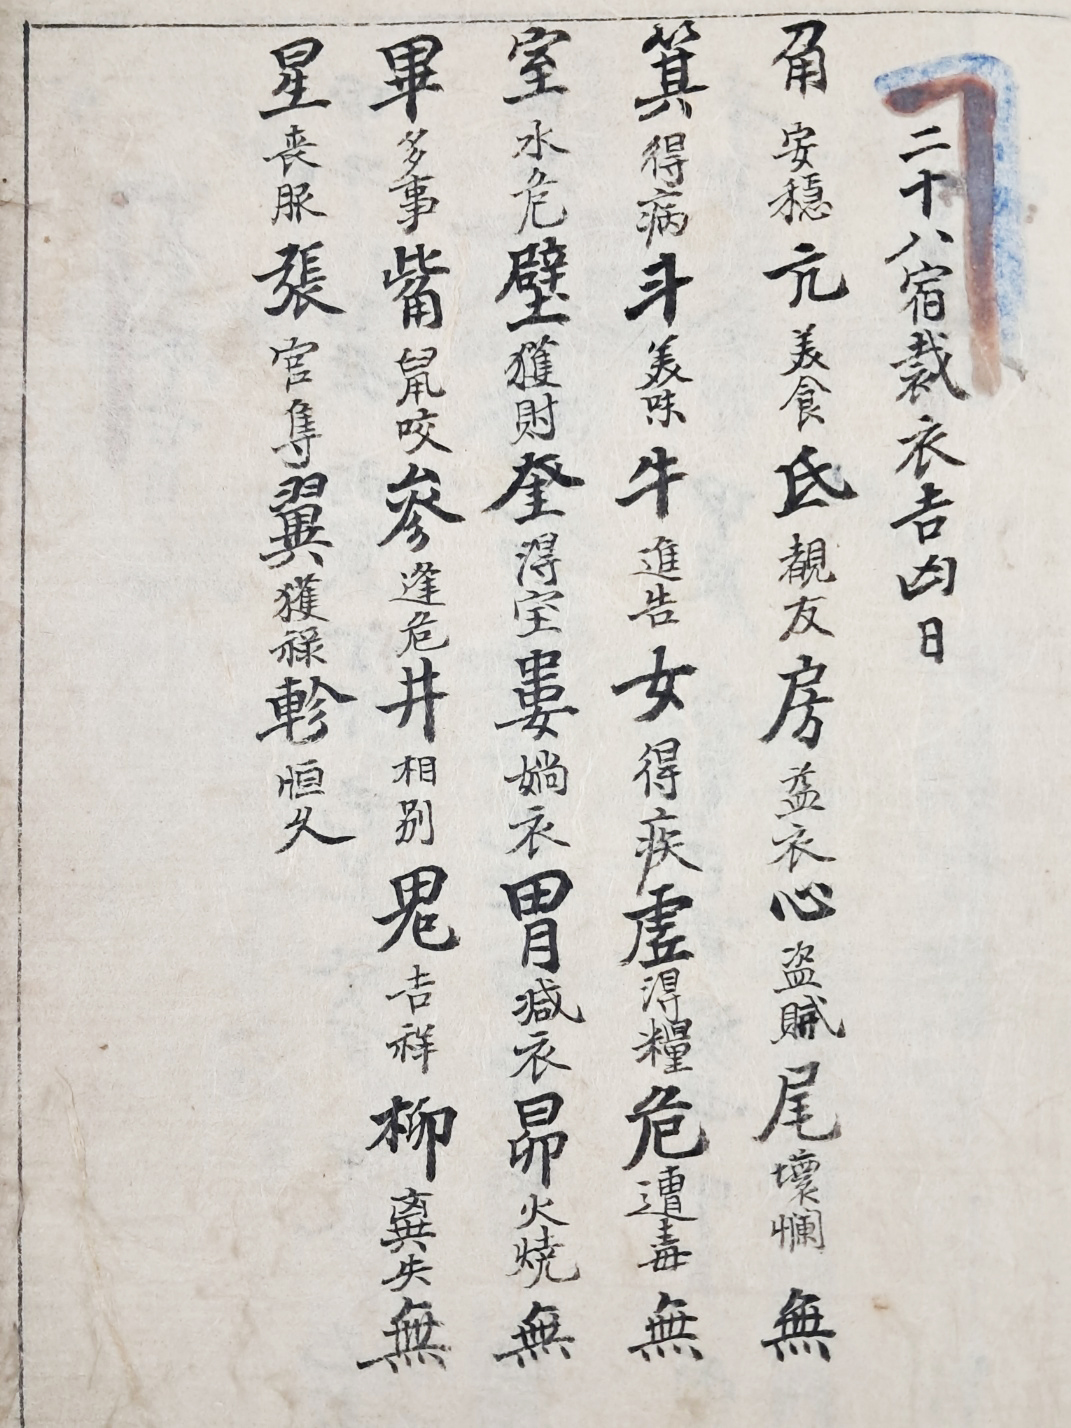 二十八宿裁衣吉凶日
角安穩亢美食氐覩友房益衣心盜賊尾壞爛無
箕得病斗美味牛進吿女得疾虛得糧危遭毒無
室水危壁獲財奎得宝婁娋衣胃減衣昴火燒無
畢多事觜鼠咬參逢危井相别鬼吉祥柳失無
星丧服張官隻翼獲祿軫恒久